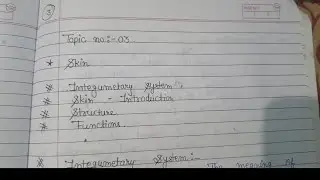 3
Topic no:-03
* Skin
* Integumetary System:-
* Skin - Introduction
* Structure
* Functions
* Integumetary System:-
The meaning of